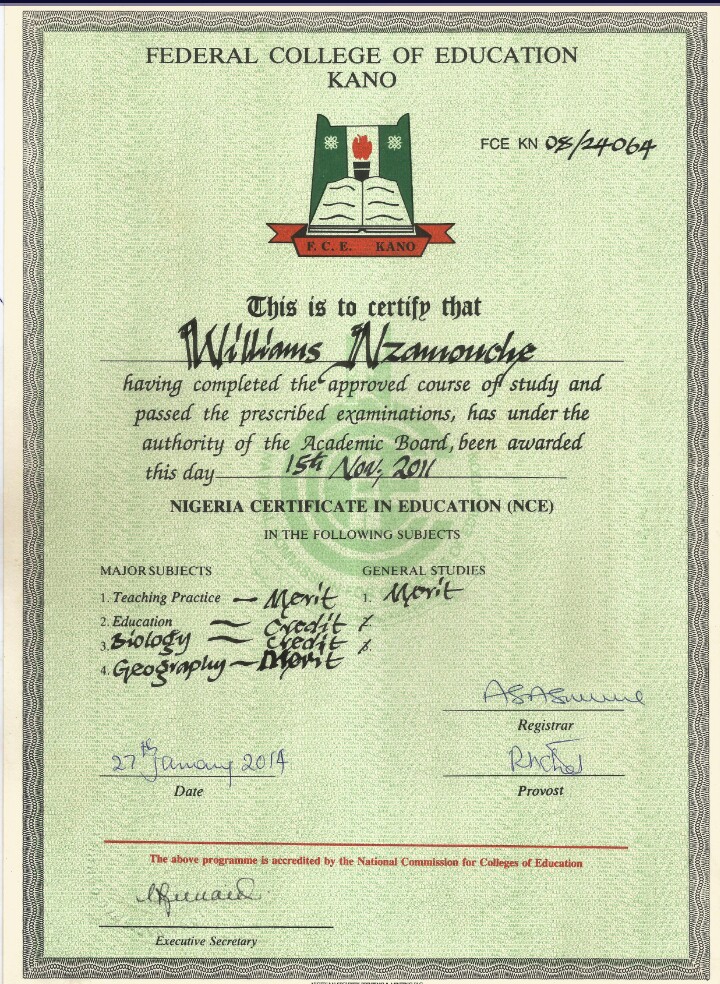 FEDERAL COLLEGE OF EDUCATION
KANO
FCE KN 08/24064
F. C. E. KANO
This is to certify that
Williams Nzamouche
having completed the approved course of study and
passed the prescribed examinations, has under the
authority of the Academic Board, been awarded
this day 15th Nov, 2011
NIGERIA CERTIFICATE IN EDUCATION (NCE)
IN THE FOLLOWING SUBJECTS
MAJOR SUBJECTS GENERAL STUDIES
1. Teaching Practice — Merit 1. Merit
2. Education — Credit
3. Biology — Credit
4. Geography — Merit
Registrar
27th January 2014
Date
Provost
The above programme is accredited by the National Commission for Colleges of Education
Executive Secretary